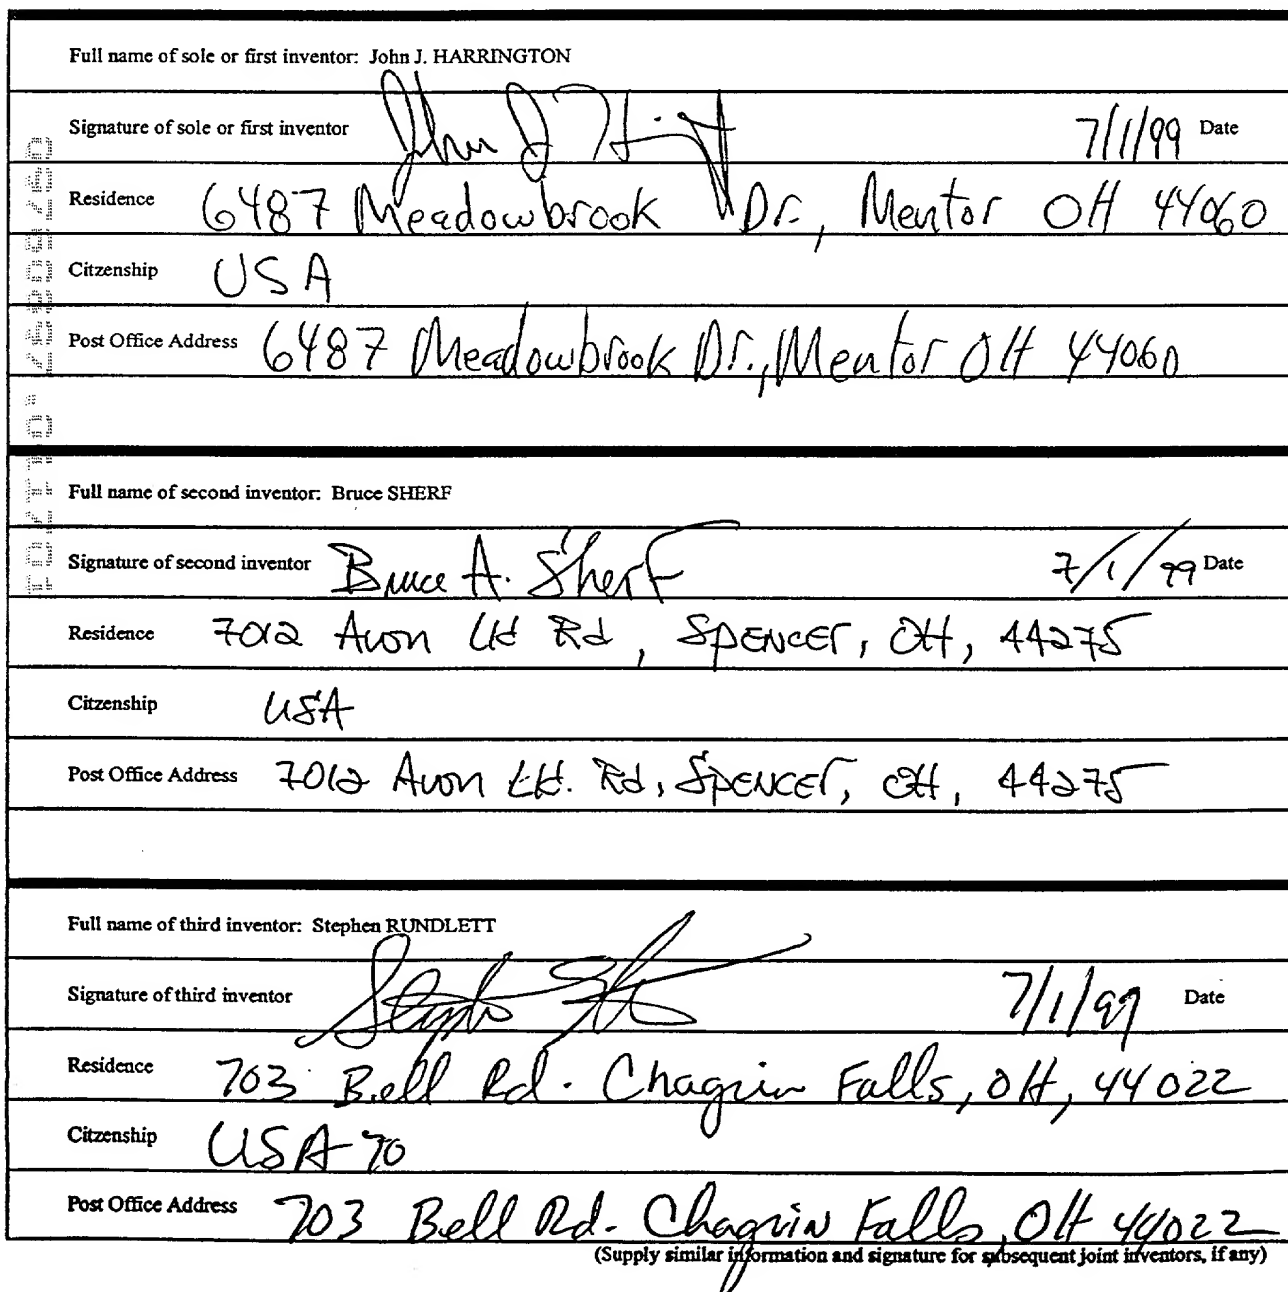 Full name of sole or first inventor: John J. HARRINGTON
Signature of sole or first inventor John J 7/1/99 Date
Residence 6487 Meadowbrook Dr., Mentor OH 44060
Citzenship USA
Post Office Address 6487 Meadowbrook Dr., Mentor OH 44060
Full name of second inventor: Bruce SHERF
Signature of second inventor Bruce A. Sherf 7/1/99 Date
Residence 7012 Avon Ld Rd, SPENCEr, OH, 44275
Citzenship USA
Post Office Address 7012 Avon Ld. Rd, SPENCEr, OH, 44275
Full name of third inventor: Stephen RUNDLETT
Signature of third inventor 7/1/99 Date
Residence 703 Bell Rd. Chagrin Falls, OH, 44022
Citzenship USA
Post Office Address 703 Bell Rd. Chagrin Falls, OH 44022
(Supply similar information and signature for subsequent joint inventors, if any)